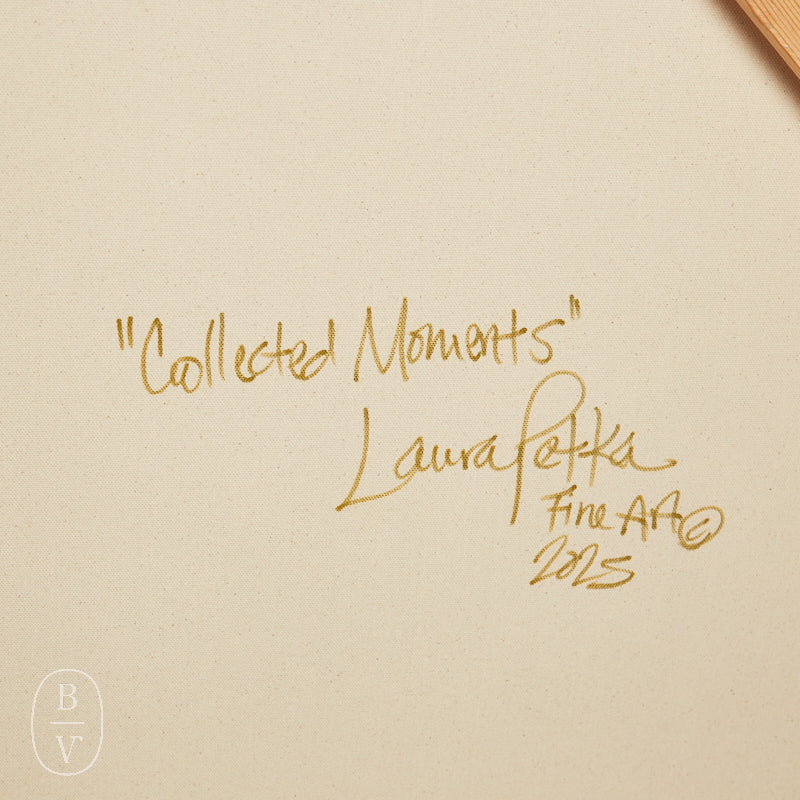 "Collected Moments"
Laura Petka
Fine Art ©
2025
B
V